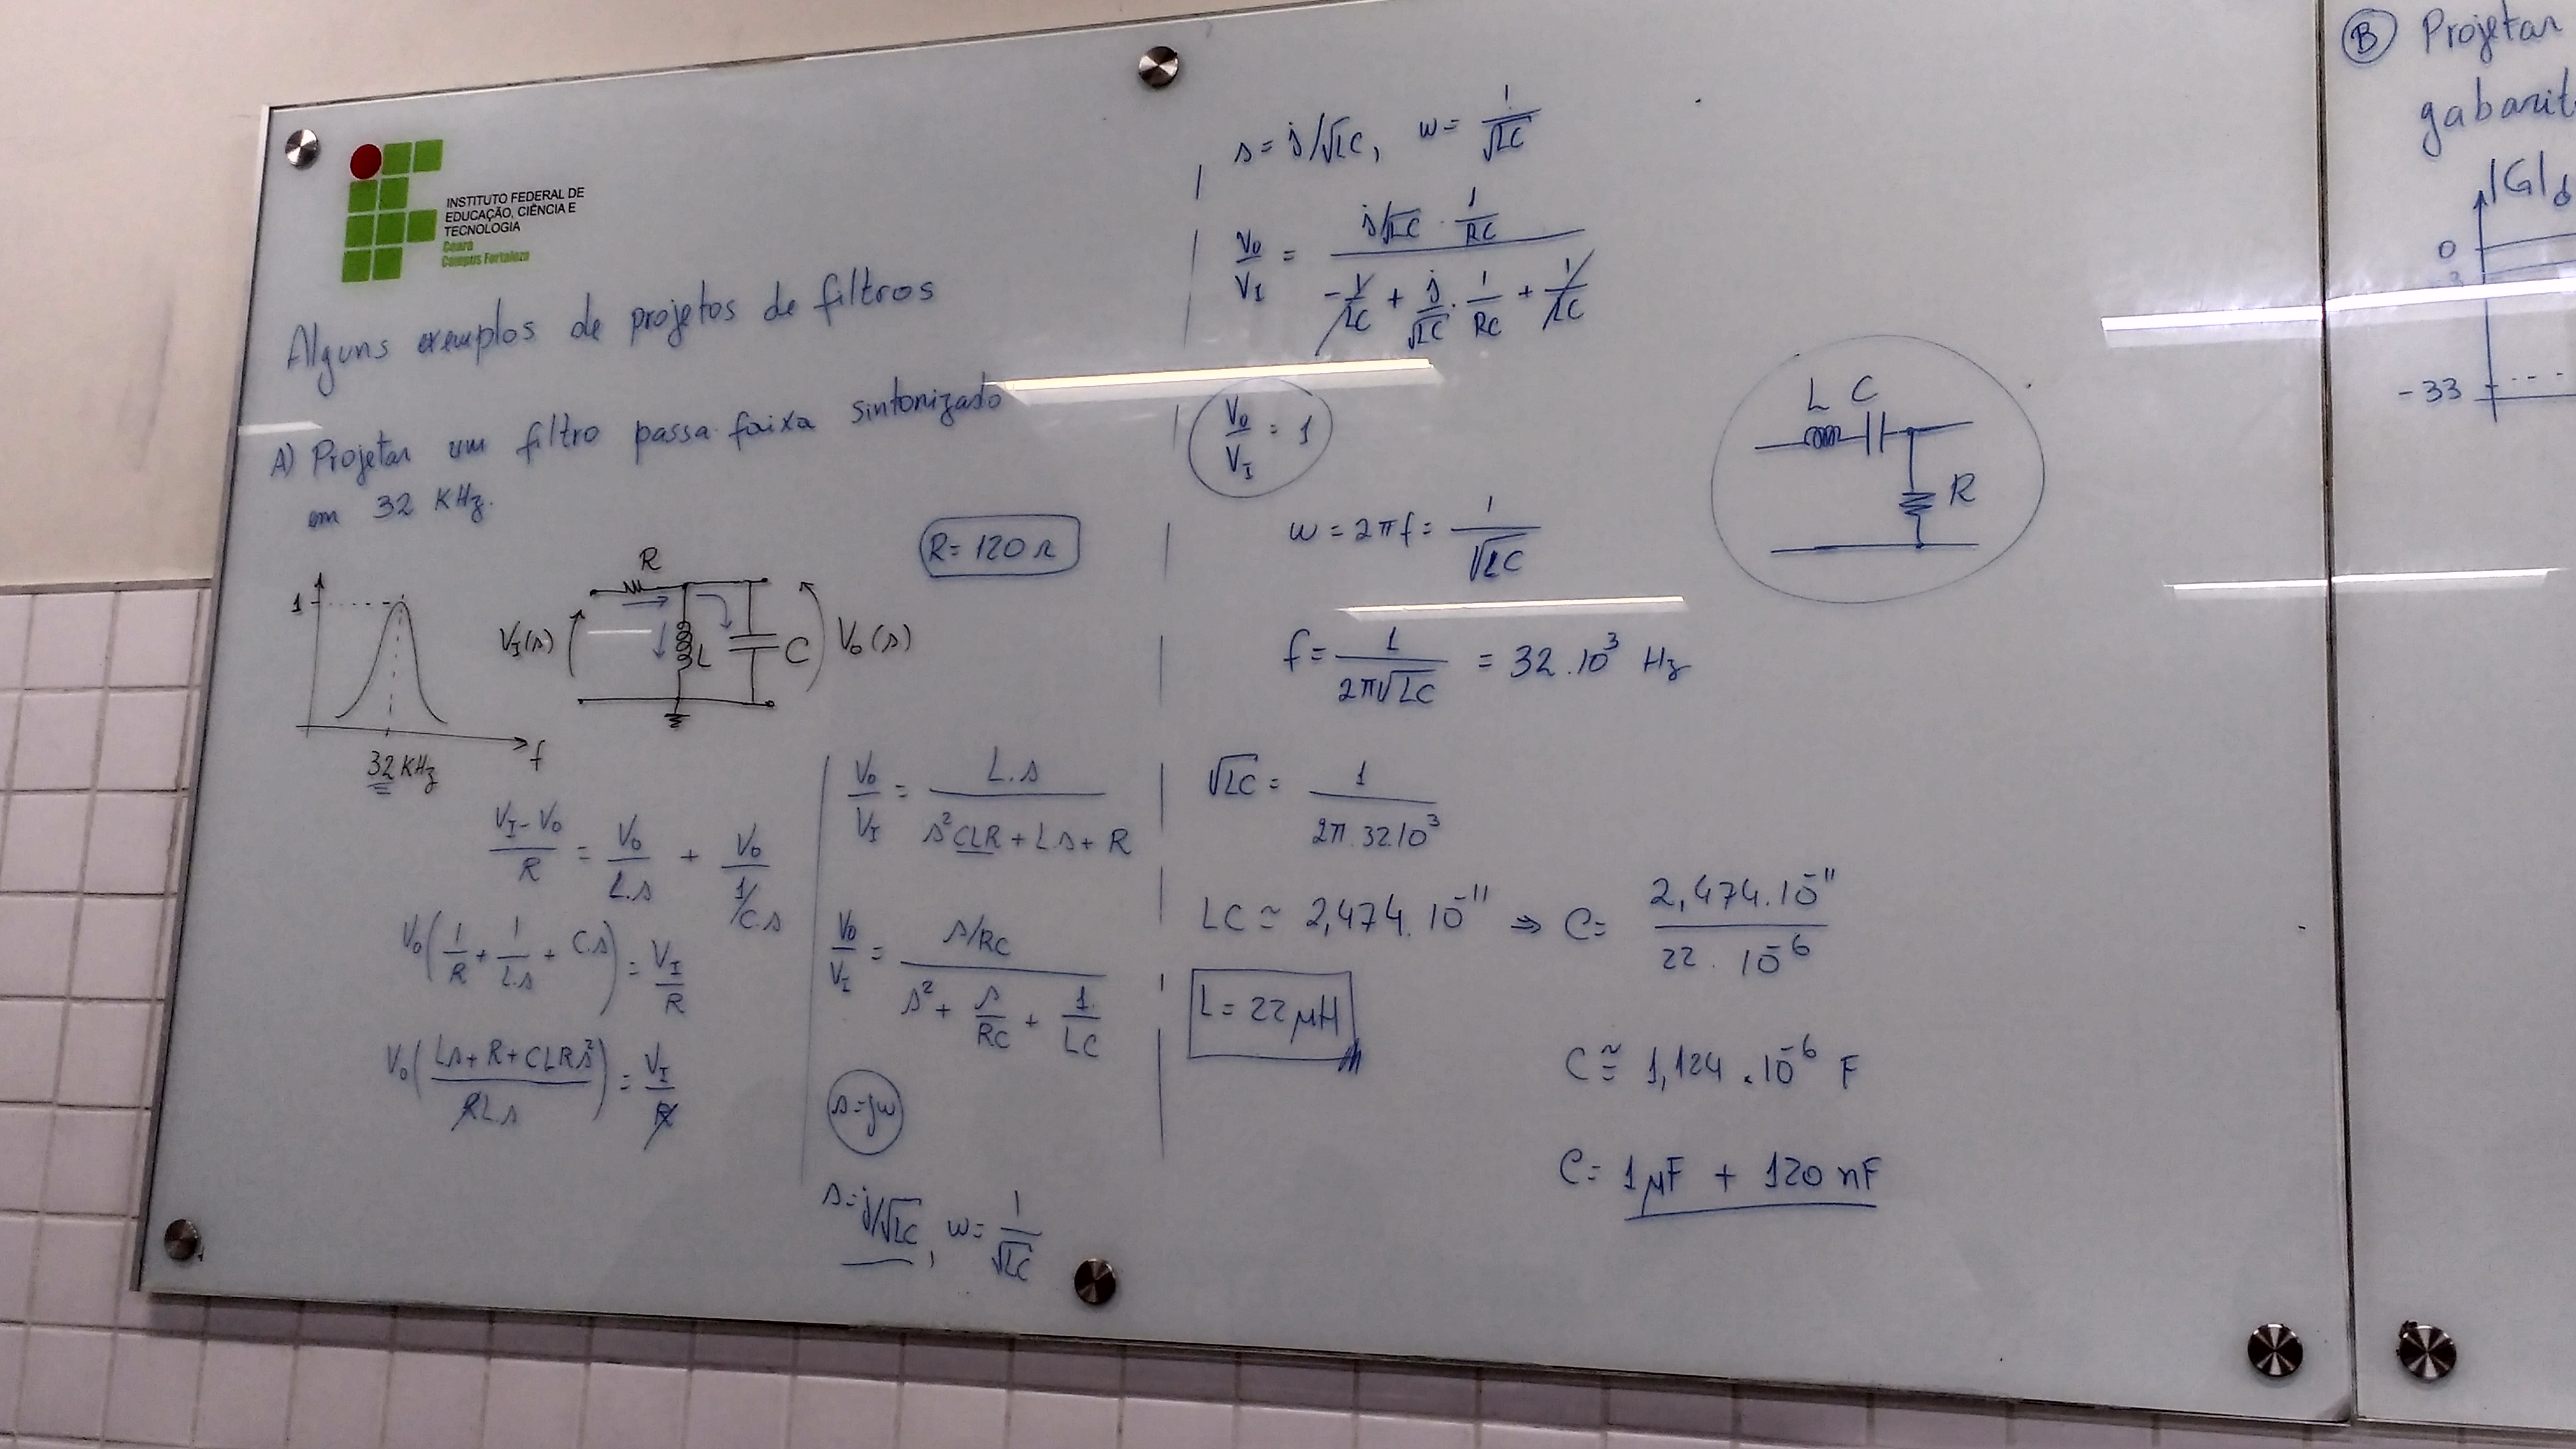 INSTITUTO FEDERAL DE
EDUCAÇÃO, CIÊNCIA E
TECNOLOGIA
Ceará
Campus Fortaleza
Alguns exemplos de projetos de filtros
A) Projetar um filtro passa faixa sintonizado
em 32 KHz.
R = 120 Ω
1
32 KHz
f
R
V_I(s)
L
C
V_o(s)
(V_I - V_o)/R = V_o/(L.s) + V_o/(1/C.s)
V_o(1/R + 1/(L.s) + C.s) = V_I/R
V_o((Ls + R + CLRs²)/(RLs)) = V_I/R
V_o/V_I = L.s/(s²CLR + Ls + R)
V_o/V_I = (s/RC)/(s² + s/RC + 1/LC)
s=jw
s=j/√LC, w= 1/√LC
s= j/√LC, w= 1/√LC
V_o/V_I = (j/√LC . 1/RC)/(-1/LC + j/√LC . 1/RC + 1/LC)
V_o/V_I = 1
w = 2πf = 1/√LC
f = 1/(2π√LC) = 32.10³ Hz
√LC = 1/(2π.32.10³)
LC ≃ 2,474.10⁻¹¹ ⇒ C= 2,474.10⁻¹¹/(22.10⁻⁶)
L= 22 μH
C ≅ 1,124.10⁻⁶ F
C= 1μF + 120 nF
L C
R
B Projetar
gabarit
|G|d
0
-3
-33